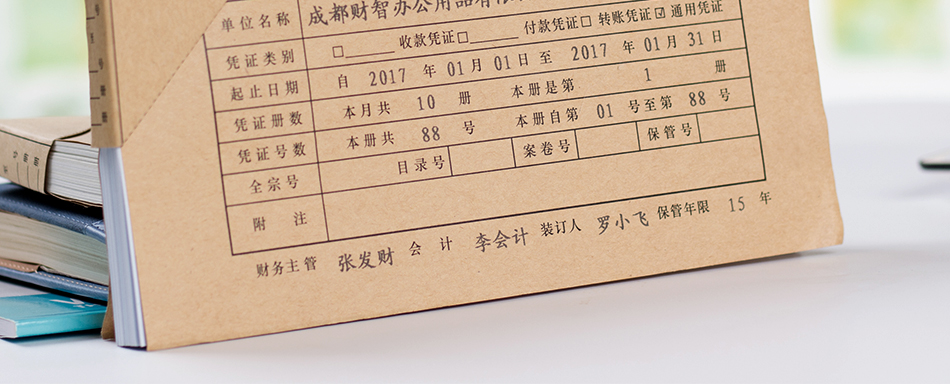 单位名称 成都财智办公用品有限
凭证类别 □ 收款凭证□ 付款凭证□ 转账凭证☑ 通用凭证
起止日期 自 2017 年 01 月 01 日 至 2017 年 01 月 31 日
凭证册数 本月共 10 册 本册是第 1 册
凭证号数 本册共 88 号 本册自第 01 号至第 88 号
全宗号 目录号 案卷号 保管号
附注
财务主管 张发财 会计 李会计 装订人 罗小飞 保管年限 15 年
号
册